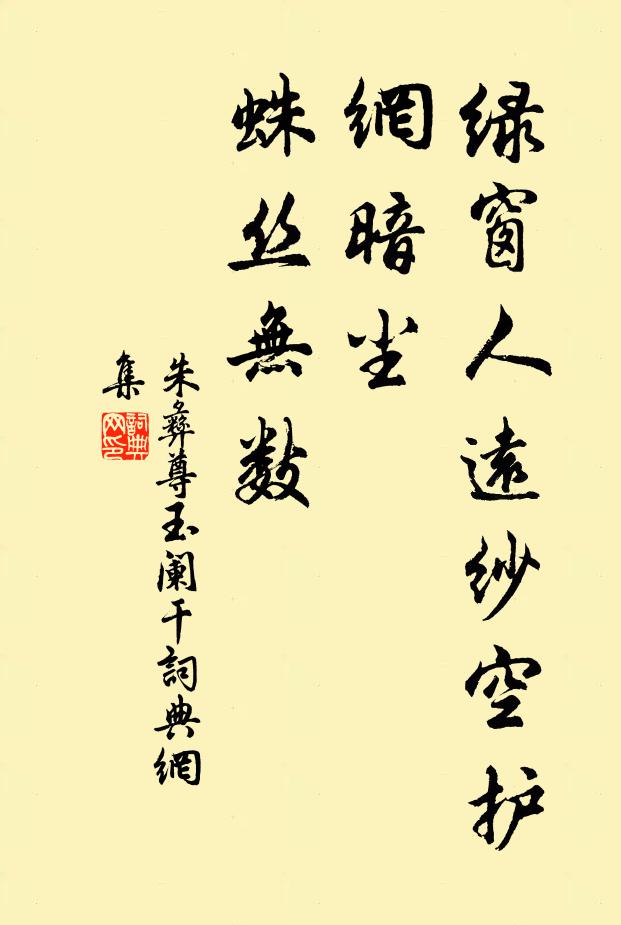 绿窗人遠紗空护
網暗尘
蛛丝無数
朱彝尊玉阑干詞典網
集
詞典
网印